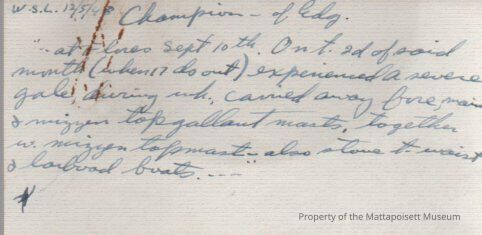 W.S.L. 12/5/4
Champion - of Edg.
"at Flores Sept 10th. On t. 2d of said
month (when 17 ds out) experienced a severe
gale during wh. carried away fore, main
& mizzen topgallant masts, together
w. mizzen topmast - also stove t. waist
& larboad boats. ---
Property of the Mattapoisett Museum